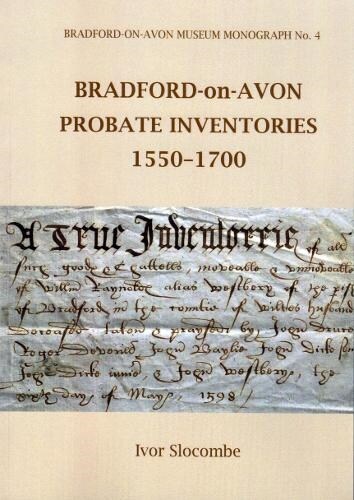 BRADFORD-ON-AVON MUSEUM MONOGRAPH No. 4
BRADFORD-on-AVON
PROBATE INVENTORIES
1550–1700
A True Inventorrie of all
such goods & cattells, moveable & unmoveable
of Willm Raynolds alias Westbery of the
of Bradford in the countie of Wiltes husband
Deceased taken & praysed by John
Roger Deverill John Baylie John Dicke
John Dicke &, the
sixth day of May, 1598
Ivor Slocombe